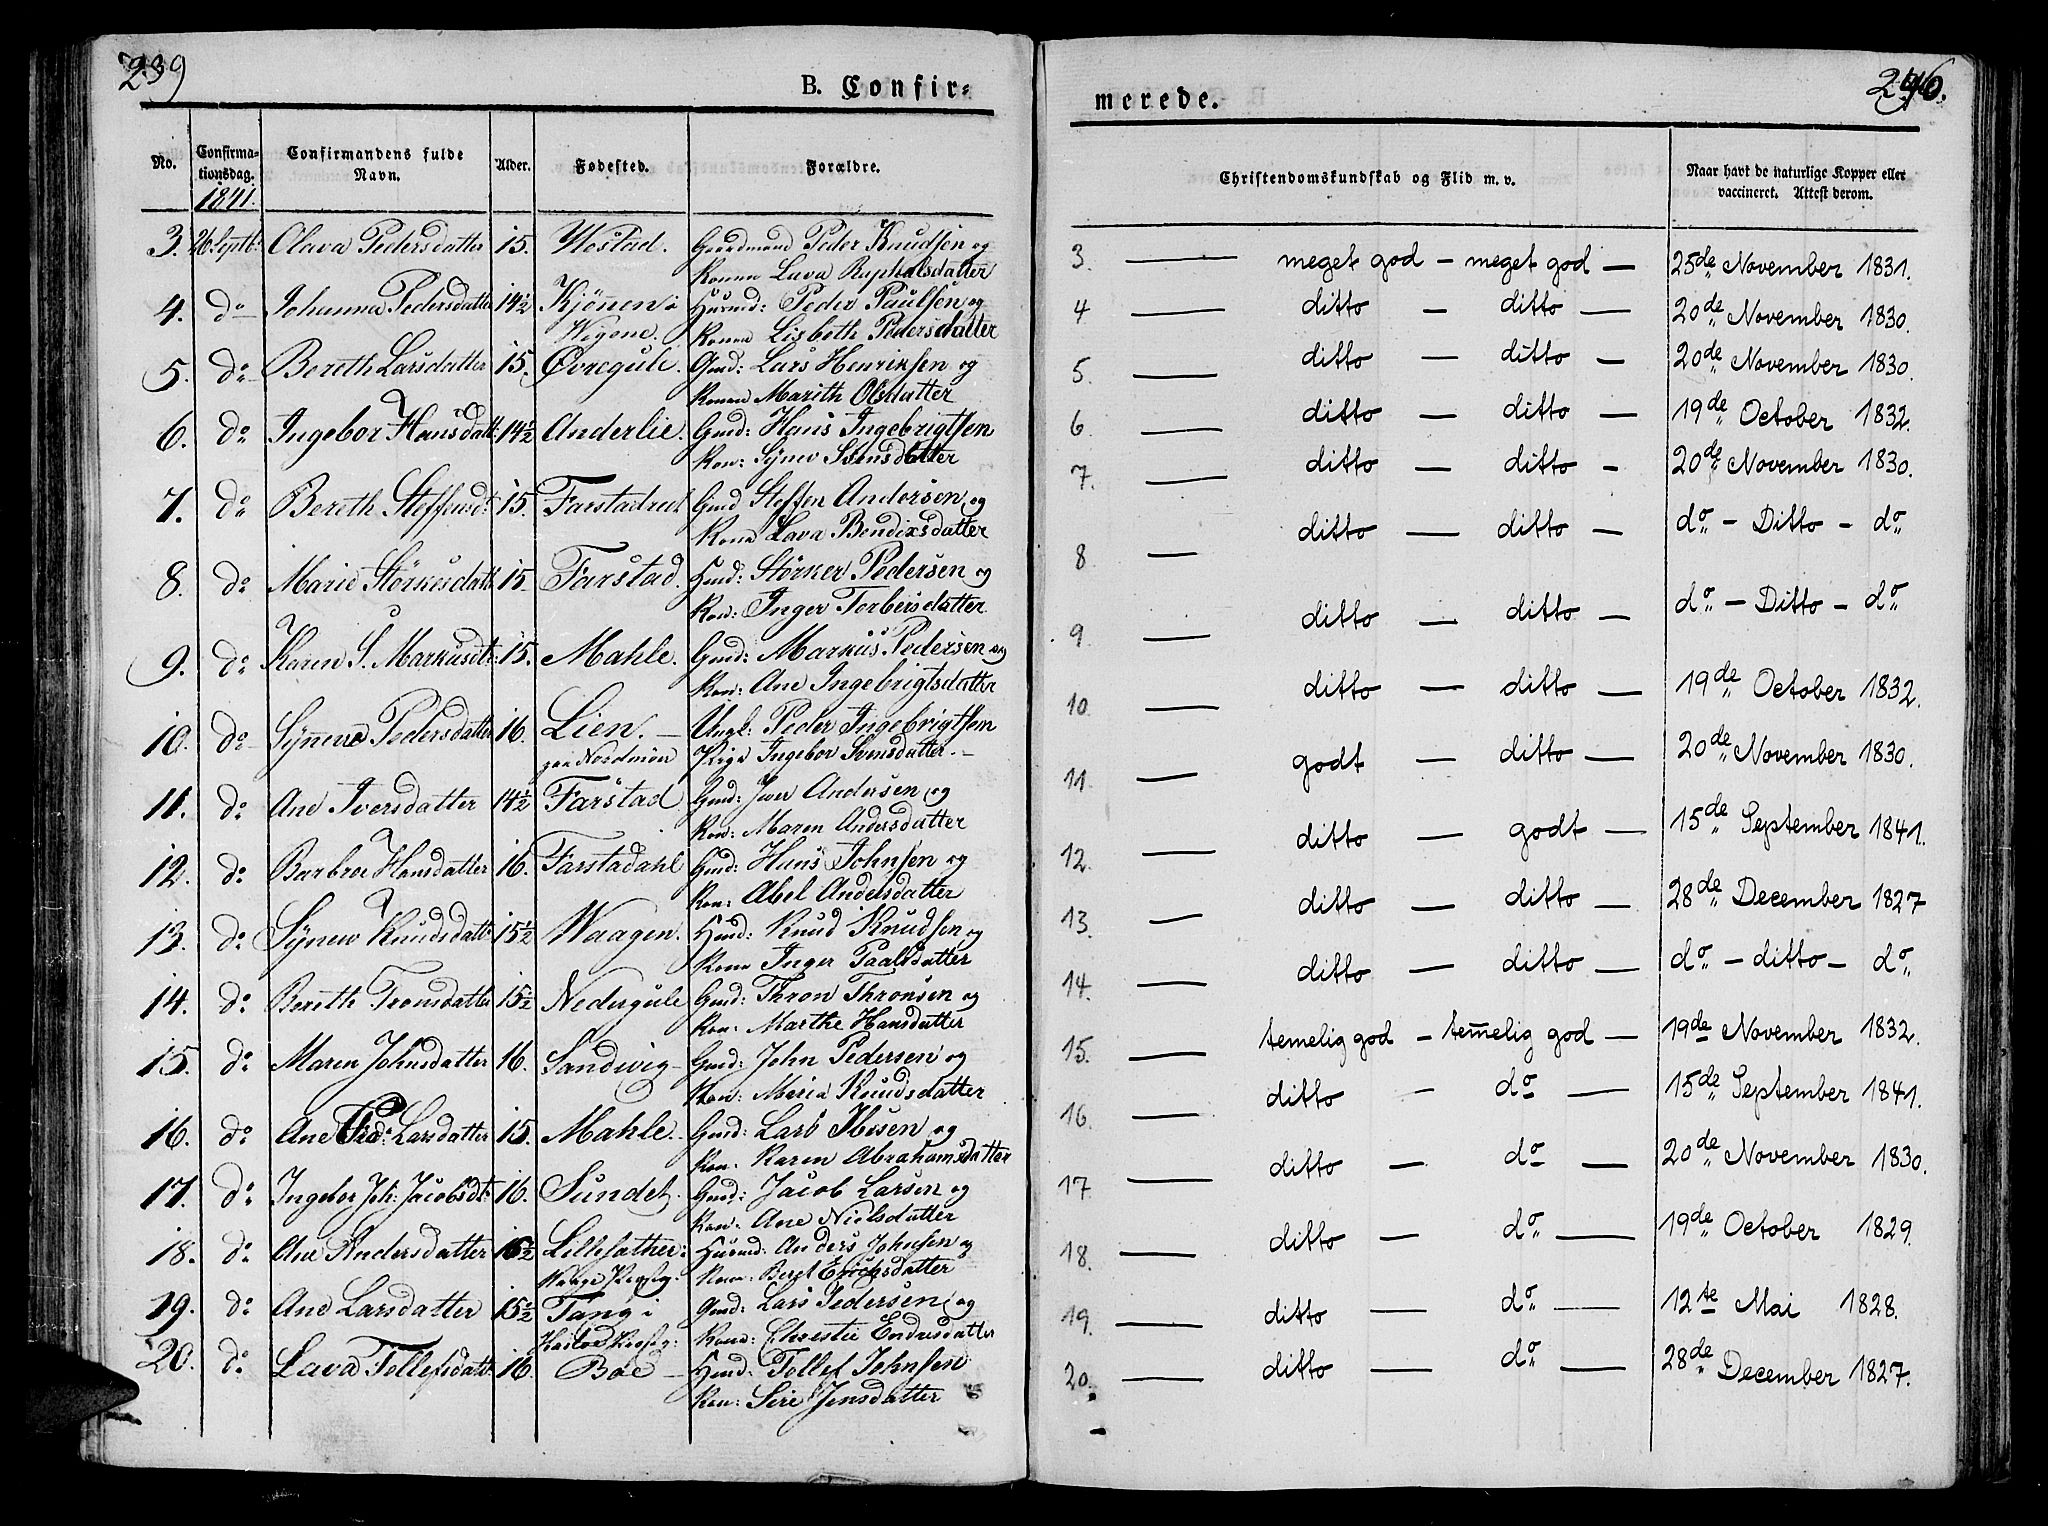 239
B. Confir-
No.
Confirma-
tionsdag.
1841.
Confirmandens fulde
Navn.
Alder.
Fødested.
Forældre.
3. 26 Septb: Olava Pedersdatter 15. Gaardmand Peder Knudsen og
Konen Lava
4. do Johanna Pedersdatter 14½ Kjönen i Husmd: Peder Paulsen og
Wigene. Konen Lisbeth Pedersdatter
5. do Bereth Larsdatter 15. Øvregule. Gmd: Lars Henriksen og
Konen Marith Olsdatter
6. do Ingebor Hansdatt 14½ Anderlie. Gmd: Hans Ingebrigtsen
Kon: Synev Svensdatter
7. do Bereth Steffensd: 15. Farstad Gmd Steffen Andersen og
Kone Lava Bendixsdatter
8. do Marie Störkersdatt 15 Farstad. Hmd: Störker Pedersen og
Kon: Inger Torbersdatter
9. do Karen S. Markusdt: 15. Mahle. Gmd: Markus Pedersen og
Kon: Ane Ingebrigtsdatter
10. do Synneve Pedersdatter 16. Lien. – Ungk: Peder Ingebrigtsen
paa Nordmör Pige Ingebor Svensdatter. –
11. do Ane Iversdatter 14½ Farstad Gmd: Iver Andersen og
Kon: Maren Andersdatter
12. do Barbroe Hansdatter 16. Farstadahl Gmd: Hans Johnsen og
Kon: Abel Andersdatter
13. do Synew Knudsdatt 15½ Waagen. Hmd: Knud Knudsen og
Kone Inger Paalsdatter
14. do Bereth Tronsdatter 15½ Nedergule Gmd: Thron Thronsen og
Kon: Marthe Hansdatter
15. do Maren Johnsdatter 16. Sandwig Gmd: John Pedersen og
Kon: Maria Knudsdatter
16. do Ane Larsdatter 15. Mahle. Gmd: Lars Ibsen og
Kon. Karen Abrahamsdatter
17. do Ingebor Joh: Jacobsdt: 16. Sundet. Gmd: Jacob Larsen og
Kon: Ane Nielsdatter
18. do Ane Andersdatter 16½ Husmd: Anders Johnsen og
Kone: Beret Erichsdatter
19. do Ane Larsdatter 15½ Tang i Gmd: Lars Pedersen og
Kone: Christie Endresdatter
20. do Lava Tollefsdatt 16. Boe – Hmd: Tollef Johnsen
Kon: Siri Jensdatter
merede.
Christendomskundskab og Flid m. v.
Naar havt de naturlige Kopper eller
vaccineret. Attest derom.
3. — meget god – meget god — 25de November 1831.
4 — ditto – ditto — 20de November 1830.
5. — ditto — ditto — 20de November 1830.
6. — ditto — ditto — 19de October 1832.
7. — ditto — ditto – 20de November 1830.
8 — ditto — ditto — do – Ditto – do
9 — ditto — ditto — do – Ditto – do
10. — ditto — ditto — 19de October 1832.
11. — godt — ditto — 20de November 1830.
12. — ditto — godt — 15de September 1841.
13. — ditto — ditto — 28de December 1827
14. — ditto — ditto — do – ditto – do
15. — temelig god – temelig god — 19de November 1832.
16. — ditto – do — 15de September 1841.
17. — ditto — do — 20de November 1830.
18. — ditto — do — 19de October 1829.
19. — ditto — do — 12te Mai 1828.
20. — ditto — do — 28de December 1827.